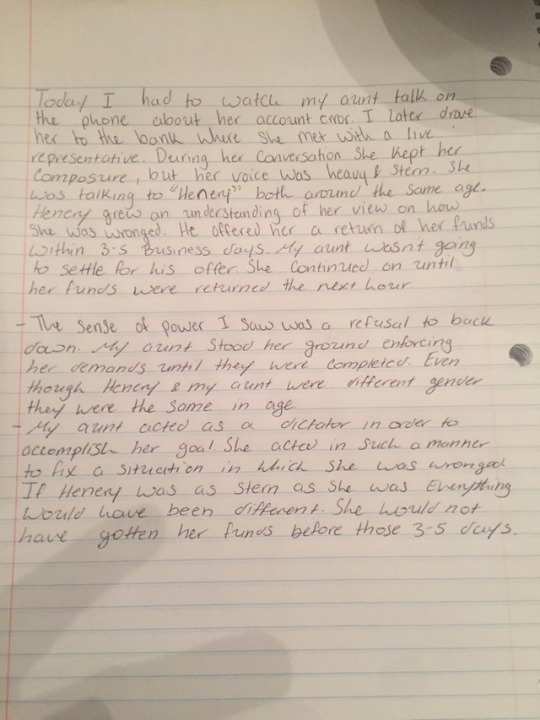 Today I had to watch my aunt talk on
the phone about her account error. I later drove
her to the bank where she met with a live
representative. During her conversation she kept her
composure, but her voice was heavy & stern. She
was talking to "Henery" both around the same age.
Henery grew an understanding of her view on how
she was wronged. He offered her a return of her funds
within 3-5 Business days. My aunt wasn't going
to settle for his offer. She continued on until
her funds were returned the next hour
- The sense of power I saw was a refusal to back
down. My aunt stood her ground enforcing
her demands until they were completed. Even
though Henery & my aunt were different gender
they were the same in age.
- My aunt acted as a dictator in order to
accomplish her goal. She acted in such a manner
to fix a situation in which she was wronged.
If Henery was as stern as she was Everything
would have been different. She would not
have gotten her funds before those 3-5 days.